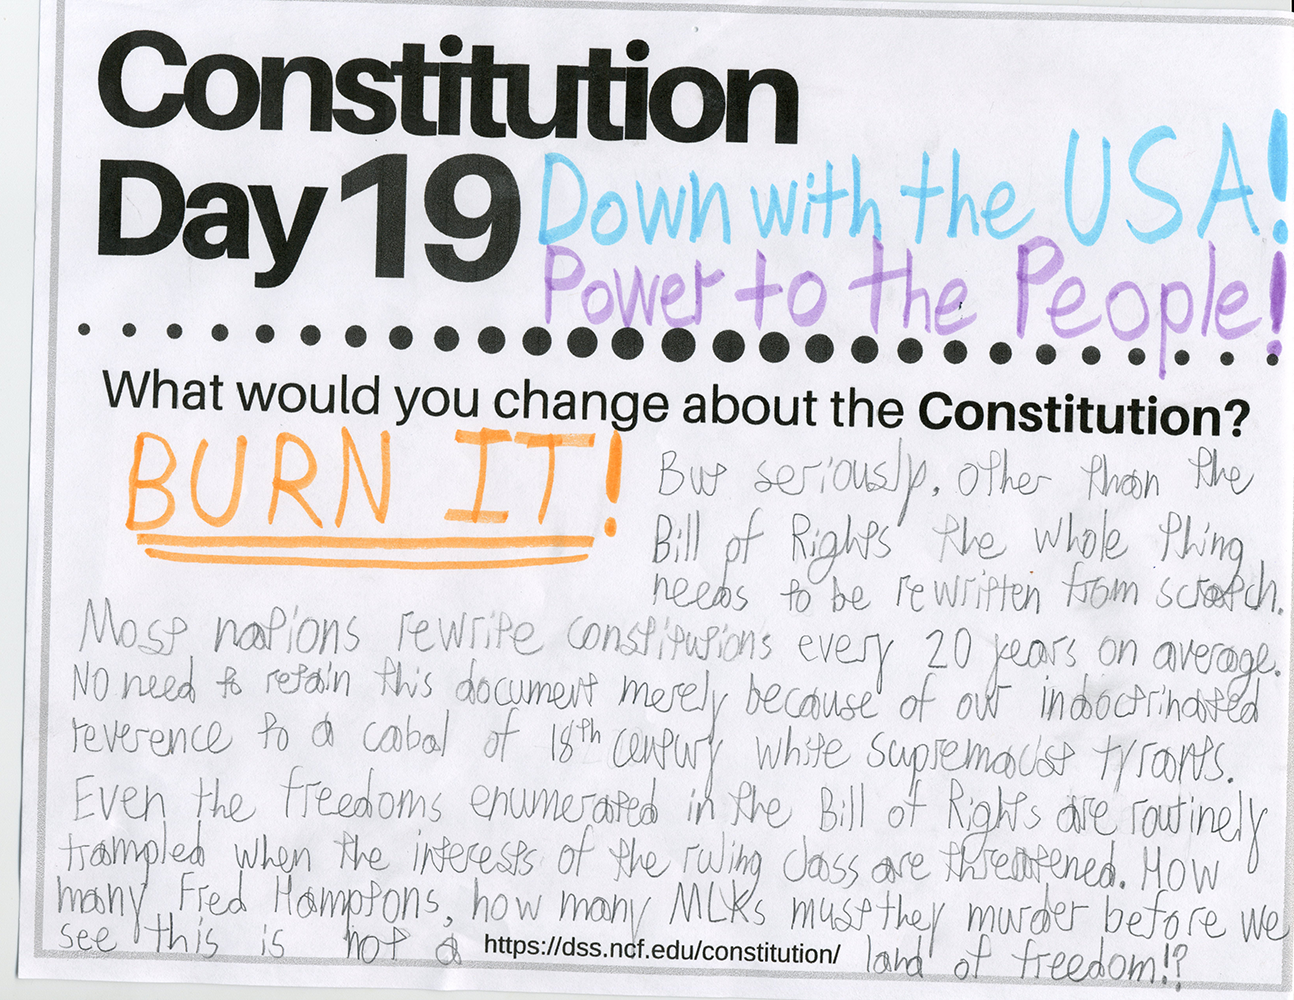 Constitution
Day 19 Down with the USA!
Power to the People!
What would you change about the Constitution?
BURN IT! But seriously, other than the
Bill of Rights the whole thing
needs to be rewritten from scratch.
Most nations rewrite constitutions every 20 years on average.
No need to retain this document merely because of our indoctrinated
reverence to a cabal of 18th century white supremacist tyrants.
Even the freedoms enumerated in the Bill of Rights are routinely
trampled when the interests of the ruling class are threatened. How
many Fred Hamptons, how many MLKs must they murder before we
see this is not a land of freedom!?
https://dss.ncf.edu/constitution/